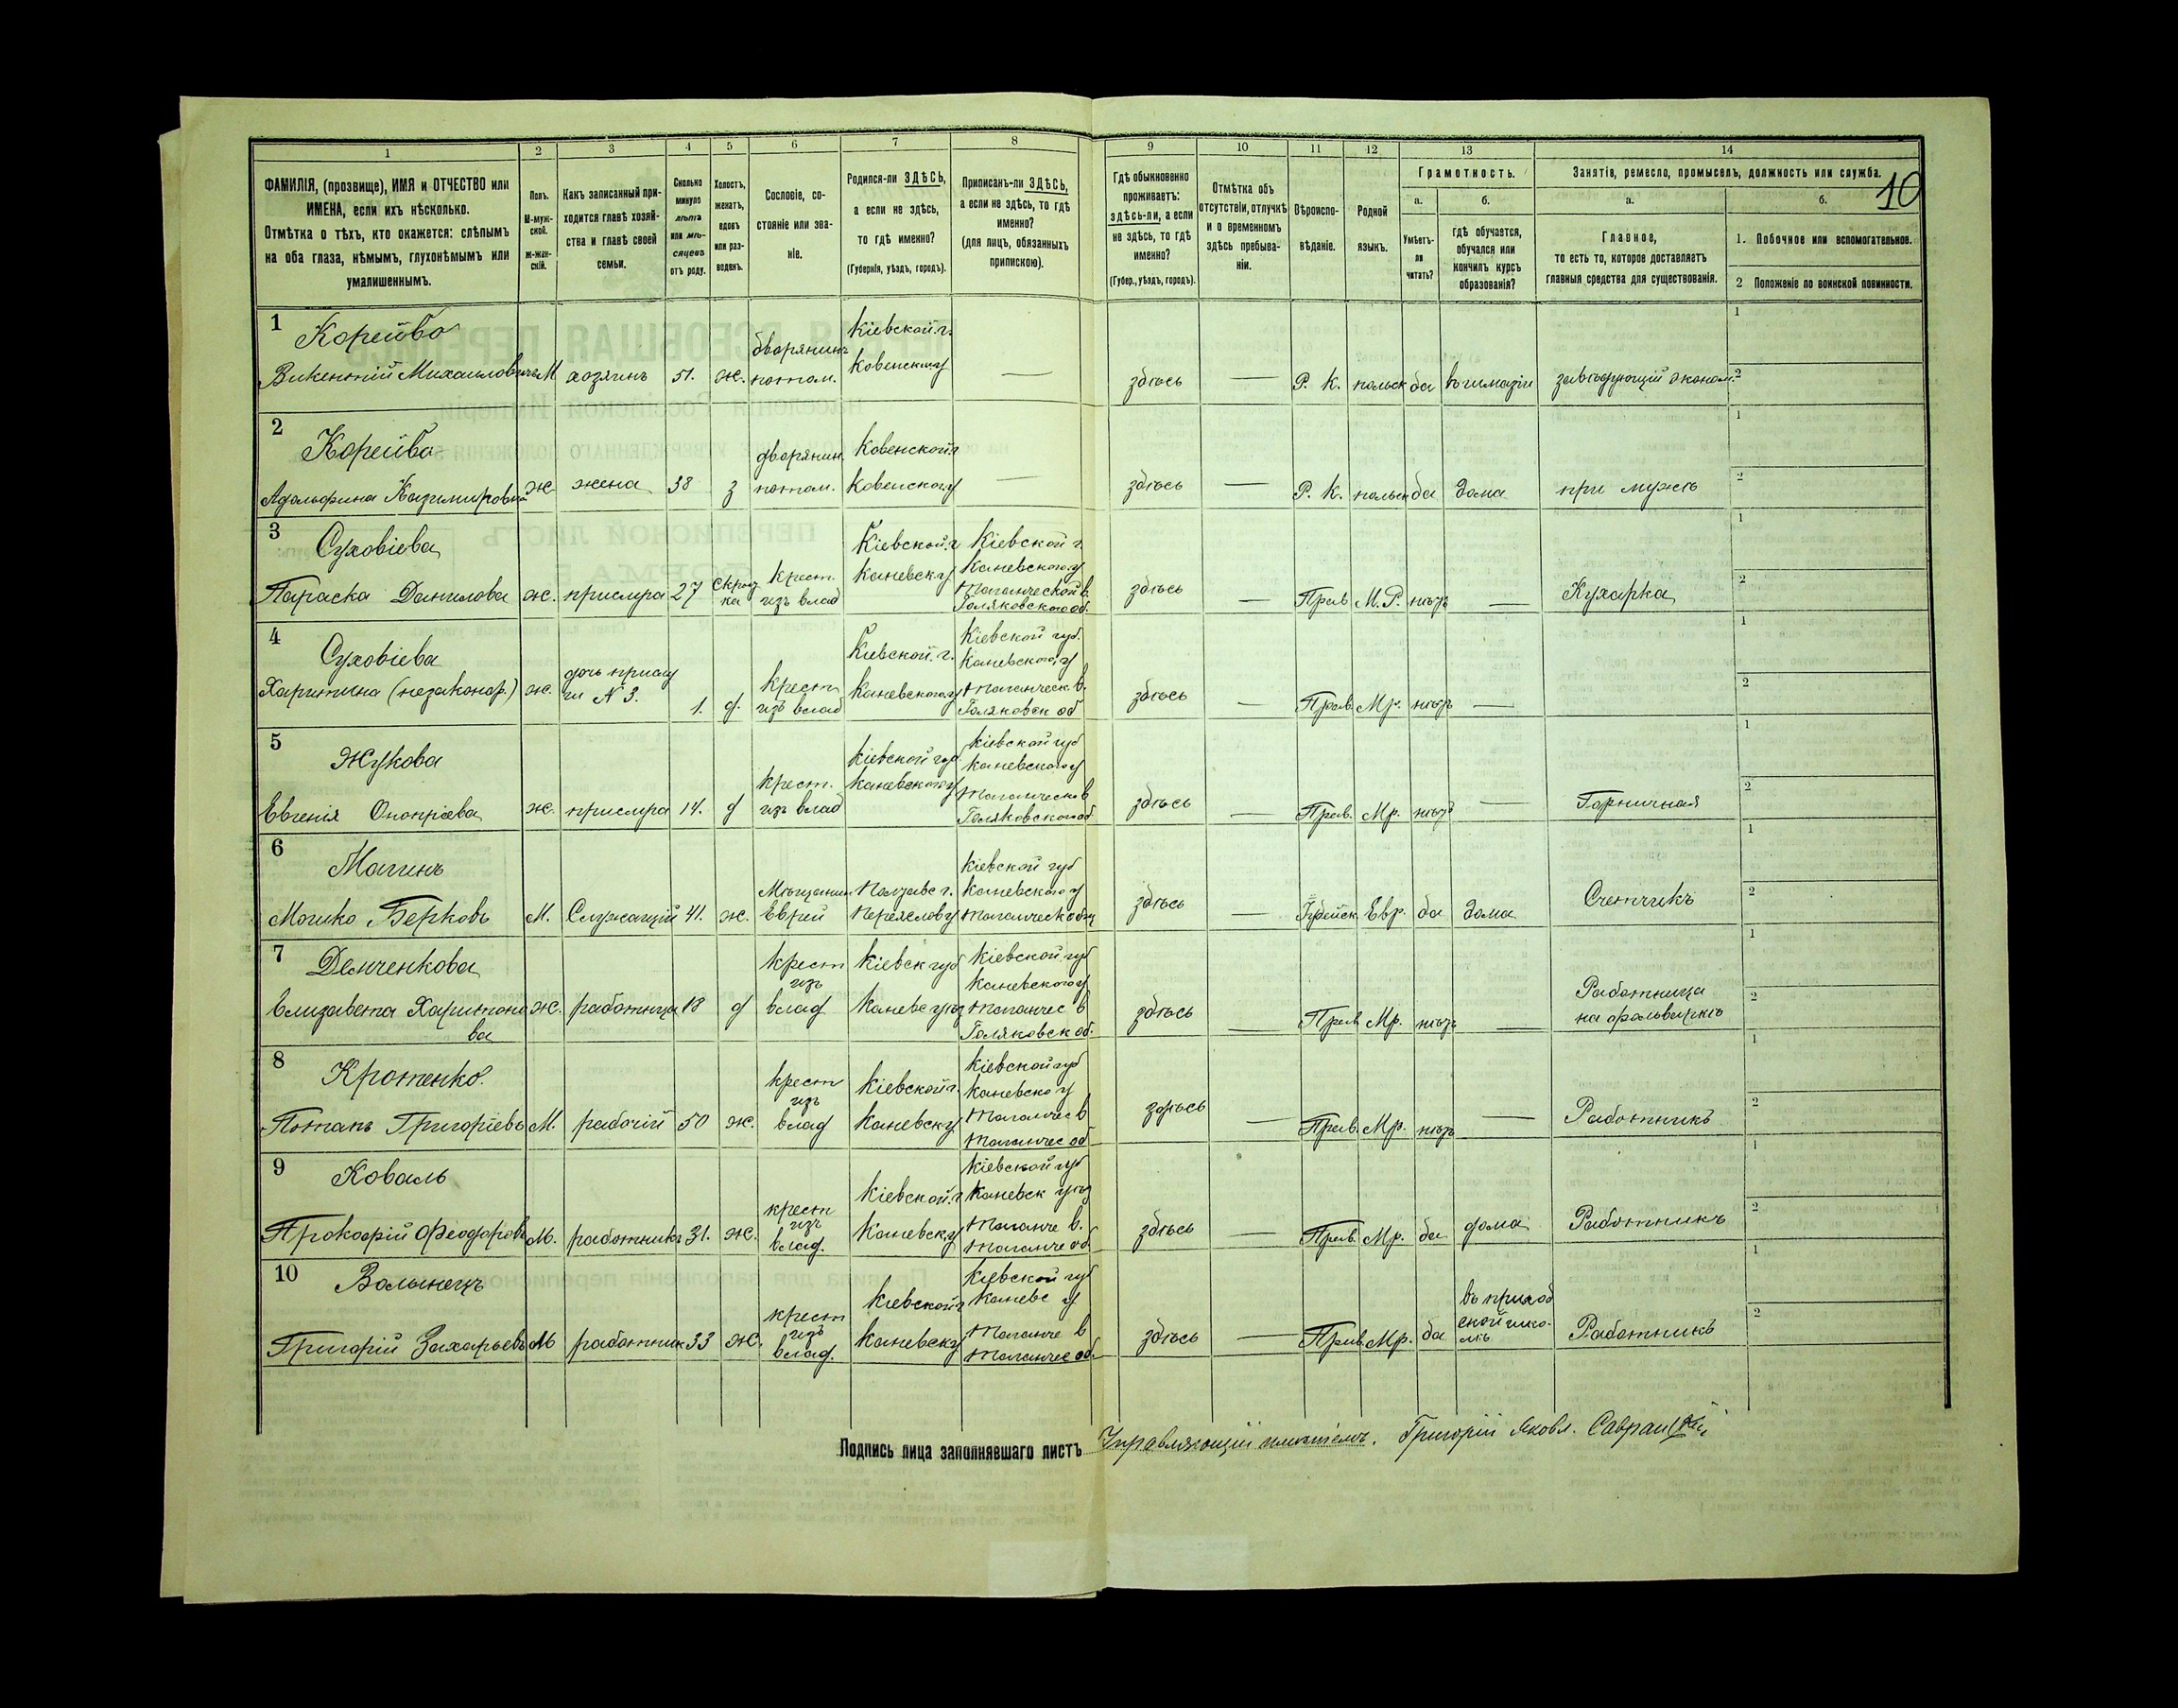 10
1 2 3 4 5 6 7 8 9 10 11 12 13 14
ФАМИЛІЯ, (прозвище), ИМЯ и ОТЧЕСТВО или
ИМЕНА, если ихъ нѣсколько.
Отмѣтка о тѣхъ, кто окажется: слѣпымъ
на оба глаза, нѣмымъ, глухонѣмымъ или
умалишеннымъ.
Полъ.
М-муж-
ской.
Ж-жен-
скій.
Какъ записанный при-
ходится главѣ хозяй-
ства и главѣ своей
семьи.
Сколько
минуло
лѣтъ
или мѣ-
сяцевъ
отъ роду.
Холостъ,
женатъ,
вдовъ
или раз-
веденъ.
Сословіе, со-
стояніе или зва-
ніе.
Родился-ли ЗДѢСЬ,
а если не здѣсь,
то гдѣ именно?
(Губернія, уѣздъ, городъ).
Приписанъ-ли ЗДѢСЬ,
а если не здѣсь, то гдѣ
именно?
(для лицъ, обязанныхъ
припискою).
Гдѣ обыкновенно
проживаетъ:
здѣсь-ли, а если
не здѣсь, то гдѣ
именно?
(Губер., уѣздъ, городъ).
Отмѣтка объ
отсутствіи, отлучкѣ
и о временномъ
здѣсь пребыва-
ніи.
Вѣроиспо-
вѣданіе.
Родной
языкъ.
Грамотность.
а.
Умѣетъ-
ли
читать?
б.
гдѣ обучается,
обучался или
кончилъ курсъ
образованія?
Занятіе, ремесло, промыселъ, должность или служба.
а.
Главное,
то есть то, которое доставляетъ
главныя средства для существованія.
б.
1. Побочное или вспомогательное.
2 Положеніе по воинской повинности.
1 Корейво
Викентій Михаиловичъ М хозяинъ 51. ж. дворянинъ потом. Кіевской г. Ковенскаго у — здѣсь — Р. К. польск да въ гимназіи завѣдующій эконом. 1 2
2 Корейва
Адольфина Казимировна ж жена 38 з дворянин. потом. Ковенской г Ковенскаго у — здѣсь — Р. К. польск да дома при мужѣ 1 2
3 Суховіева
Параска Данилова ж. прислуга 27 крест. изъ влад Кіевской г Каневск у Кіевской г. Каневскаго у Таганческой в. Голяковскаго об. здѣсь — Прав М. Р. нѣтъ — Кухарка 1 2
4 Суховіева
Харитина (незаконор.) ж. дочь прислу ги N 3. 1. д. крест изъ влад Кіевской г. Каневскаго у Кіевской губ. Каневскаго у Таганческ в. Голяковск об здѣсь — Прав. Мр. нѣтъ — 1 2
5 Жукова
Евгенія Онопріева ж. прислуга 14. д крест. изъ влад Кіевской губ Каневскаго у Кіевской губ Каневскаго у Таганческо в Голяковскаго об здѣсь — Прав. Мр. нѣтъ — Горничная 1 2
6 Магинъ
Мошко Берковъ М. Служащій 41. ж. Мѣщанин Еврей Полтавс г. Переяслов у Кіевской губ Каневскаго у Таганческ общ здѣсь — Іудейск. Евр. да дома Счетчикъ 1 2
7 Демченкова
Елизавета Харитоно ва ж. работница 18 д крест изъ влад Кіевск губ Каневс уѣз Кіевской губ Каневскаго у Таганчес в Голяковск об. здѣсь — Прав Мр. нѣтъ — Работница на фольваркѣ 1 2
8 Кротенко.
Потапъ Григоріевъ М. рабочій 50 ж. крест изъ влад Кіевской г. Каневск у Кіевской губ Каневско у Таганчес в Таганчес об здѣсь — Прав. Мр. нѣтъ — Работникъ 1 2
9 Коваль
Прокофій Феодоровъ М. работникъ 31. ж. крест изъ влад. Кіевской г Каневск у Кіевской губ Каневск уѣз Таганче в. Таганче об здѣсь — Прав. Мр. да дома Работникъ 1 2
10 Волынецъ
Григорій Захарьевъ М работник 33 ж. крест изъ влад. Кіевской г Каневск у Кіевской губ Каневс у Таганче в Таганчес об. здѣсь — Прав. Мр. да въ приход ской шко- лѣ Работникъ 1 2
Подпись лица заполнявшаго листъ Управляющій имѣніемъ. Григорій Яковл.